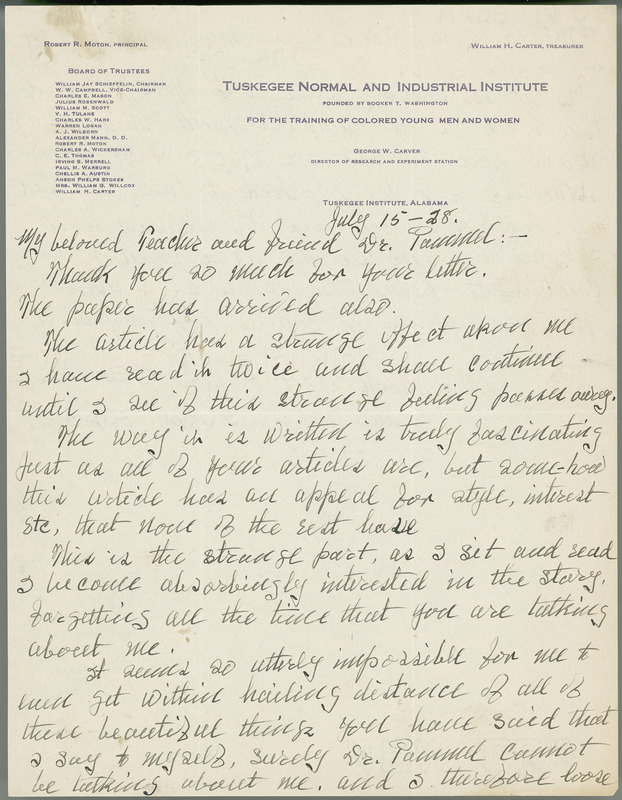 ROBERT R. MOTON, PRINCIPAL
WILLIAM H. CARTER, TREASURER
BOARD OF TRUSTEES
WILLIAM JAY SCHIEFFELIN, CHAIRMAN
W. W. CAMPBELL, VICE-CHAIRMAN
CHARLES E. MASON
JULIUS ROSENWALD
WILLIAM M. SCOTT
V. H. TULANE
CHARLES W. HARE
WARREN LOGAN
A. J. WILBORN
ALEXANDER MANN, D. D.
ROBERT R. MOTON
CHARLES A. WICKERSHAM
C. E. THOMAS
IRVING S. MERRELL
PAUL M. WARBURG
CHELLIS A. AUSTIN
ANSON PHELPS STOKES
MRS. WILLIAM G. WILLCOX
WILLIAM H. CARTER
TUSKEGEE NORMAL AND INDUSTRIAL INSTITUTE
FOUNDED BY BOOKER T. WASHINGTON
FOR THE TRAINING OF COLORED YOUNG MEN AND WOMEN
GEORGE W. CARVER
DIRECTOR OF RESEARCH AND EXPERIMENT STATION
TUSKEGEE INSTITUTE, ALABAMA
July 15-28.
My beloved Teacher and friend Dr. Pammel:-
Thank you so much for your letter.
The paper has arrived also.
The article has a strange effect upon me
I have read it twice and shall continue
until I see if this strange feeling passes away.
The way it is written is truly fascinating
just as all of your articles are, but some-how
this article has an appeal for style, interest
etc, that none of the rest have
This is the strange part, as I sit and read
I become absorbingly interested in the story,
forgetting all the time that you are talking
about me.
It seems so utterly impossible for me to
even get within hailing distance of all of
these beautiful things you have said that
I say to myself, surely Dr. Pammel cannot
be talking about me. and I therefore loose